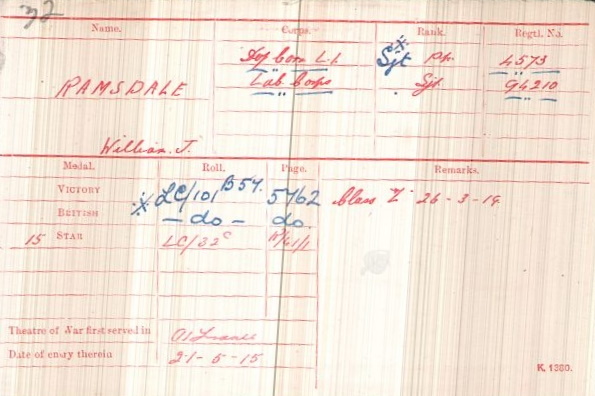 32
Name. Corps. Rank. Regtl. No.
Corn L.I. Sjt Pte. 4573
RAMSDALE Lab Corps Sjt 94210
William. J.
Medal. Roll. Page. Remarks.
VICTORY LC/101 B57. 5762 Class Z 26-3-19.
BRITISH - do - do.
15 STAR LC/32C
Theatre of War first served in France
Date of entry therein 21-5-15
K. 1380.